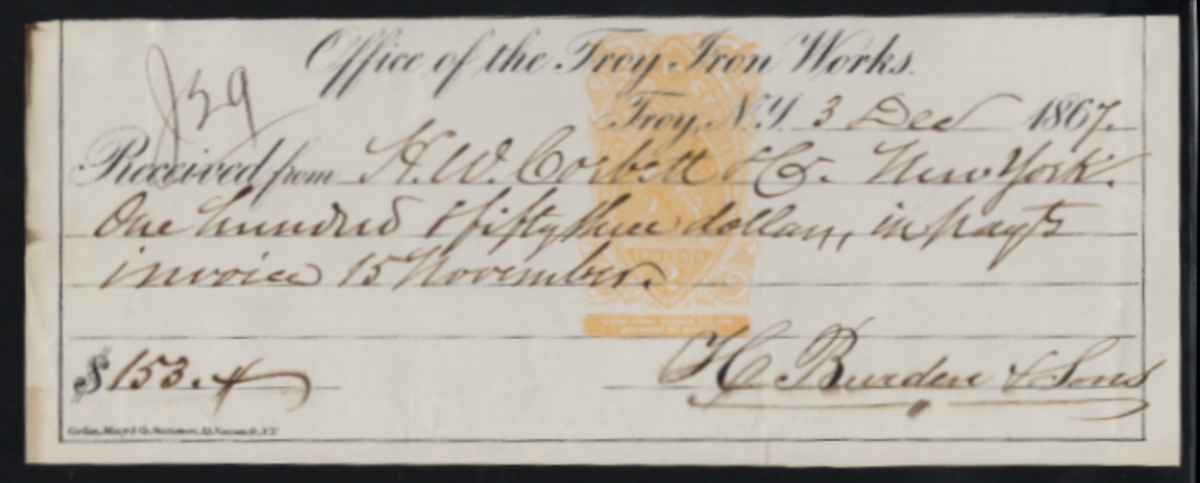 Office of the Troy Iron Works.
Troy, N.Y. 3 Dec 1867.
Received from H. W. Corbett & Co. New York.
One hundred & fifty three dollars, in payt
invoice 15 November.
$ 153.
H. Burden & Sons